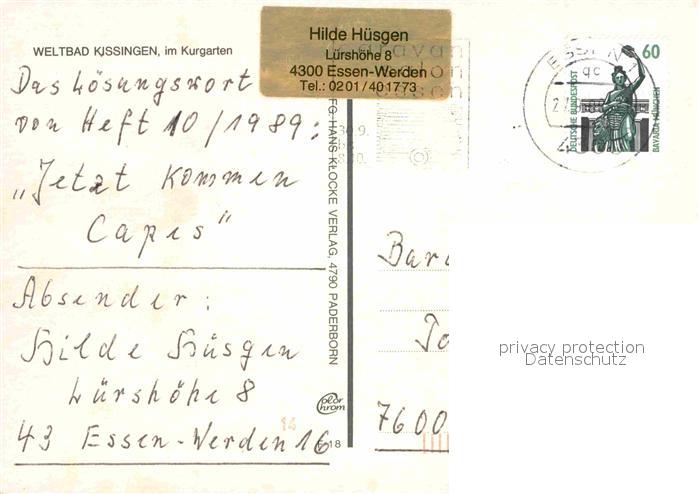 WELTBAD KISSINGEN, im Kurgarten
Das Lösungswort
von Heft 10/1989:
„Jetzt kommen
Capes"
Absender:
Hilde Hüsgen
Lürshöhe 8
43 Essen-Werden 16
Hilde Hüsgen
Lürshöhe 8
4300 Essen-Werden
Tel.: 0201/401773
HANS KLOCKE VERLAG, 4790 PADERBORN
color
chrom
18
30.9.
ESSEN
qc
60
DEUTSCHE BUNDESPOST
BAVARIA MÜNCHEN
7600
privacy protection
Datenschutz